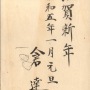 賀新年
和五年一月元旦
倉